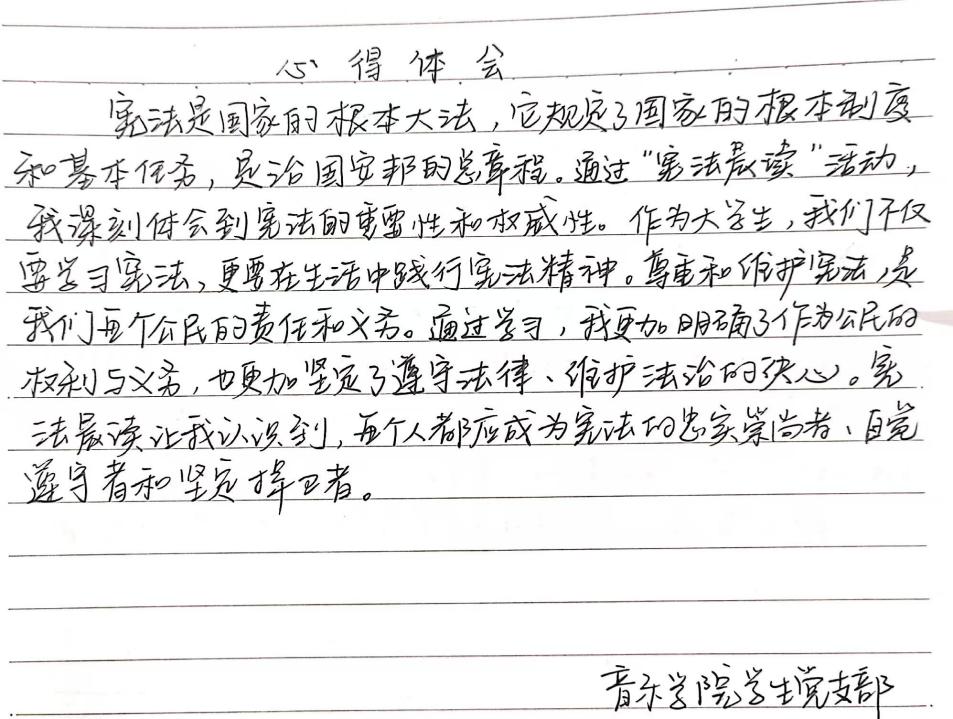 心得体会
宪法是国家的根本大法，它规定了国家的根本制度
和基本任务，是治国安邦的总章程。通过“宪法晨读”活动，
我深刻体会到宪法的重要性和权威性。作为大学生，我们不仅
要学习宪法，更要在生活中践行宪法精神。尊重和维护宪法，是
我们每个公民的责任和义务。通过学习，我更加明确了作为公民的
权利与义务，也更加坚定了遵守法律、维护法治的决心。宪
法晨读让我认识到，每个人都应成为宪法的忠实崇尚者、自觉
遵守者和坚定捍卫者。
音乐学院学生党支部